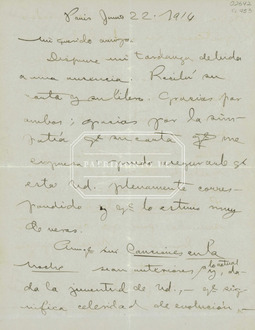 Paris Junio 22-1916
Mi querido amigo:
Dispense mi tardanza, debida
a una ausencia. Recibí su
carta y su libro. Gracias por
ambos; gracias por la sim-
patía qe su carta me
expresa. Puedo asegurarle qe
está Ud. plenamente corres-
pondido y qe lo estimo muy
de veras.
Aunqe sus Canciones en la
noche sean anteriores y, da-
da la juventud de Ud., - qe sig-
nifica celeridad de evolución, -